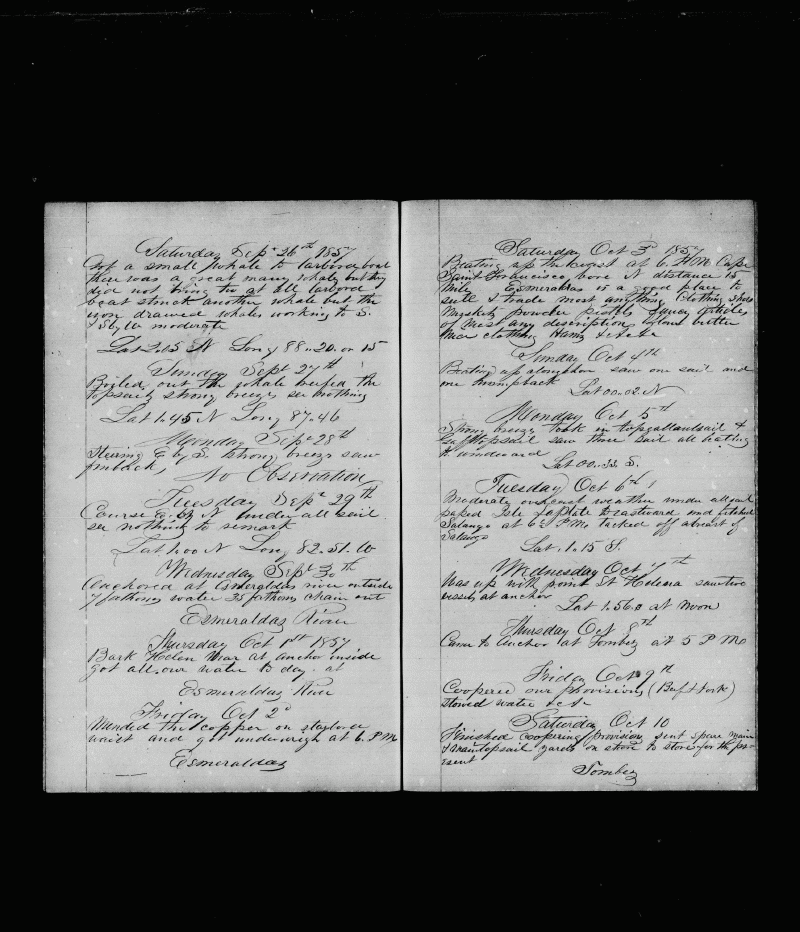 Saturday Sept 26th 1857
Got a small whale to larboard boat
there was a great many whales but they
did not bring tu at all larbord
boat struck another whale but the
iron drawed whales working to S.
S by W moderate
Lat 2.15 N Long 88.20. or 15
Sunday Sept 27th
Boiled out the whale reefed the
topsails strong breezes see nothing
Lat 1.45 N Long 87.46
Monday Sept 28th
Stearing E by S. strong breezes saw
finbacks,
No Observation
Tuesday Sept 29th
Course E. by N under all sail
see nothing to remark
Lat 1.00 N Long 82.51. W
Wednesday Sept 30th
Anchored at Esmeraldas river outside
7 fathoms water 35 fathoms chain out
Esmeraldas River
Thursday Oct 1st 1857
Bark Helen Mar at anchor inside
got all our water to day. at
Esmeraldas River
Friday Oct 2d
Mended the copper on starbord
waist and got underweigh at 6. P M
Esmeraldas
Saturday Oct 3d 1857
Beating up the coast at 6. P.M. Cape
Saint Francisco bore N distance 15
mile Esmeraldas is a good place to
sell & trade most anything Clothing Shoes
Muskets powder pistols fancy articles
of most any description, flour butter
thin clothing hams &c &c
Sunday Oct 4th
Beating up alongshore saw one sail and
one humpback
Lat 00.02. N
Monday Oct 5th
Strong breezes took in topgallantsail &
gafftopsail saw three sail all beating
to windward
Lat 00..32 S.
Tuesday Oct 6th
Moderate overcast weather under all sail
passed Isle Laplate to eastward and
Salango at 6½ P.M. tacked off abreast of
Salango
Lat. 1.15 S.
Wednesday Oct 7th
Was up with point St Helena saw two
vessels at anchor
Lat 1.56. at Noon
Thursday Oct 8th
Came to Anchor at Tombez at 5 P M
Friday Oct 9th
Coopered our provisions (Beef & Pork)
stowed water &c &c
Saturday Oct 10
Finished coopering provision, sent spare main
& maintopsail yards on shore to store for the pre-
sent
Tombez